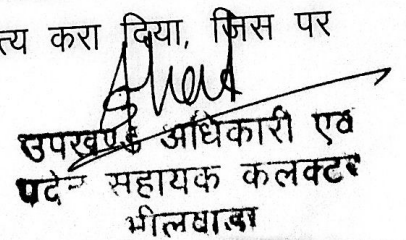 त्य करा दिया, जिस पर
उपखण्ड अधिकारी एव
पदेन सहायक कलक्टर
भीलवाडा